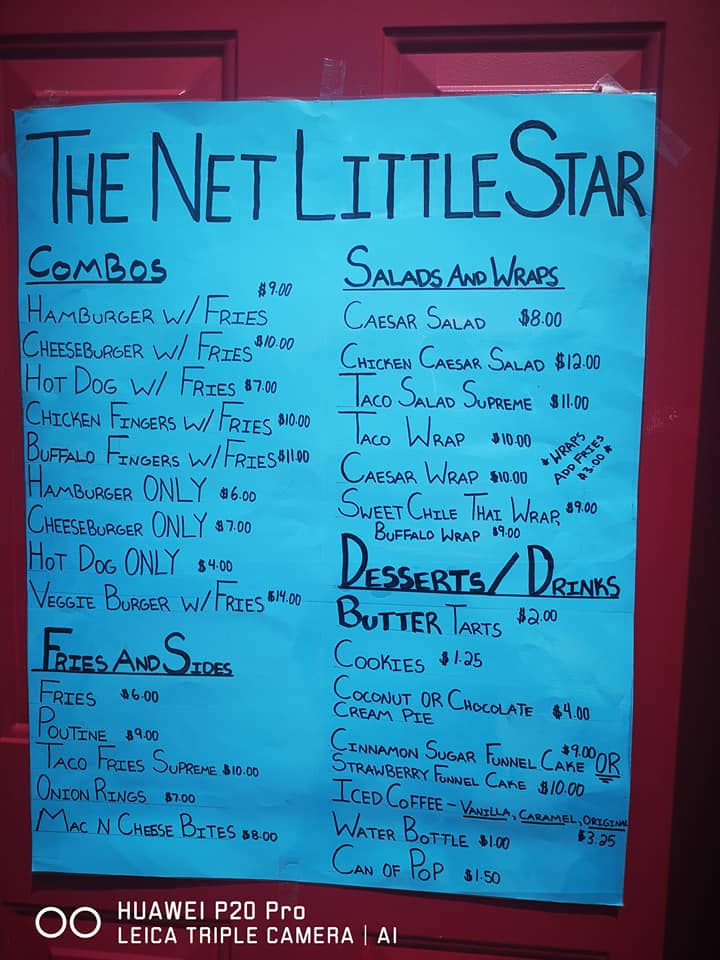 THE NET LITTLE STAR
COMBOS
HAMBURGER W/ FRIES $9.00
CHEESEBURGER W/ FRIES $10.00
HOT DOG W/ FRIES $7.00
CHICKEN FINGERS W/ FRIES $10.00
BUFFALO FINGERS W/ FRIES $11.00
HAMBURGER ONLY $6.00
CHEESEBURGER ONLY $7.00
HOT DOG ONLY $4.00
VEGGIE BURGER W/ FRIES $14.00
FRIES AND SIDES
FRIES $6.00
POUTINE $9.00
TACO FRIES SUPREME $10.00
ONION RINGS $7.00
MAC N CHEESE BITES $8.00
SALADS AND WRAPS
CAESAR SALAD $8.00
CHICKEN CAESAR SALAD $12.00
TACO SALAD SUPREME $11.00
TACO WRAP $10.00
CAESAR WRAP $10.00
* WRAPS
ADD FRIES
$3.00 *
SWEET CHILE THAI WRAP, $9.00
BUFFALO WRAP $9.00
DESSERTS/DRINKS
BUTTER TARTS $2.00
COOKIES $1.25
COCONUT OR CHOCOLATE $4.00
CREAM PIE
CINNAMON SUGAR FUNNEL CAKE $9.00 OR
STRAWBERRY FUNNEL CAKE $10.00
ICED COFFEE - VANILLA, CARAMEL, ORIGINAL
$3.25
WATER BOTTLE $1.00
CAN OF POP $1.50
HUAWEI P20 Pro
LEICA TRIPLE CAMERA | AI